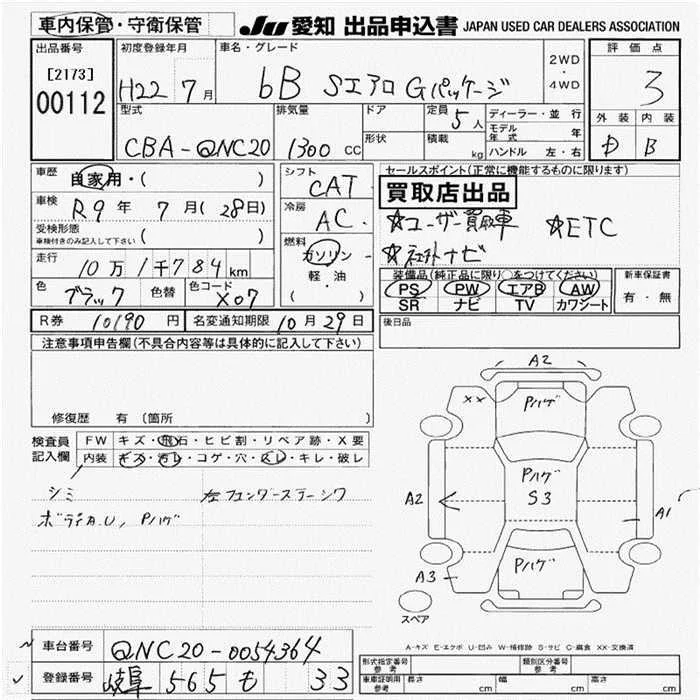 車内保管・守衛保管
JU 愛知 出品申込書 JAPAN USED CAR DEALERS ASSOCIATION
出品番号 初度登録年月 車名・グレード 評価点
[2173]
00112
H22 7月 bB Sエアロ Gパッケージ 2WD・4WD 3
型式 排気量 ドア 定員 5人 ディーラー・並行 外装 内装
形状 積載 kg モデル年式 年
CBA-QNC20 1300 CC ハンドル 左・右 D B
車歴 自家用・( ) シフト CAT セールスポイント(正常に機能するものに限ります)
買取店出品
車検 R9年 7月(28日) 冷房 AC
☆ユーザー買取車 ☆ETC
受検形態
車検付きのみ記入して下さい ( ) 燃料 ガソリン
☆ ナビ
走行 10万1千784km 軽・油
( )
装備品(純正品に限り○をつけてください) 新車保証書
色 ブラック 色替 色コード X07
PS PW エアB AW 有・無
SR ナビ TV カワシート
R券 10190円 名変通知期限 10月29日 後日品
注意事項申告欄(不具合内容等は具体的に記入して下さい)
修復歴 有(箇所 )
検査員記入欄 FW キズ・飛石・ヒビ割・リペア跡・X要
内装 キズ・汚レ・コゲ・穴・スレ・キレ・破レ
シミ 左フェンダーステーシワ
ボディA.U, Pハゲ
A2
XX Pハゲ
Pハゲ
S3
A2 A1
Pハゲ
A3
スペア
A-キズ E-エクボ U-凹み W-補修跡 S-サビ C-腐食 XX-交換済
車台番号 QNC20-0054364
登録番号 岐阜 565 も 33
形式指定番号 参考 類別区分番号 参考
車庫証明用 参考 長さ cm 幅 cm 高さ cm